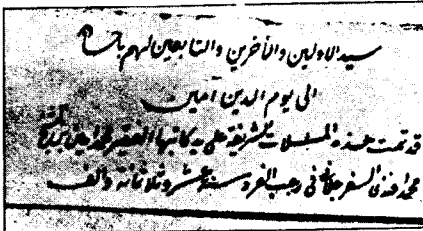 سيد الاولين والآخرين والتابعين لهم باحسان
الى يوم الدين آمين
قد تمت هذه المسلسلات الشريفة على يد كاتبها الفقير محمد امين
محمد افندى السفرجلانى فى رجب الفرد سنة عشر وثلاثمائة والف